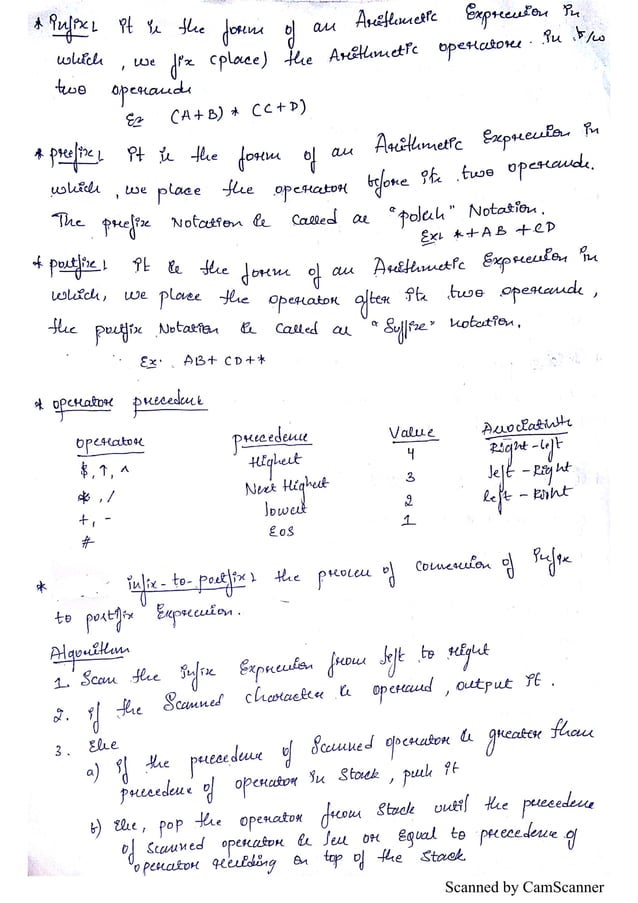 * Infix: It is the form of an Arithmetic Expression in
which, we fix (place) the Arithmetic operators. in b/w
two operands
Ex (A+B) * (C+D)
* prefix: It is the form of an Arithmetic Expression in
which, we place the operator before its two operands.
The prefix Notation is called as "polish" Notation.
Ex: *+AB +CD
* postfix: It is the form of an Arithmetic Expression in
which, we place the operator after its two operands,
the postfix Notation is called as "Suffix" notation.
Ex: AB+ CD+*
* operator precedence
operator precedence Value Associativity
$, ↑, ^ Highest 4 Right-left
*, / Next Highest 3 left - Right
+, - lowest 2 left - Right
# EOS 1
* infix-to-postfix: the process of conversion of Infix
to postfix Expression.
Algorithm
1. Scan the infix Expression from left to right
2. If the Scanned character is operand, output it.
3. Else
a) If the precedence of Scanned operator is greater than
precedence of operator in stack, push it
b) Else, pop the operator from stack until the precedence
of scanned operator is less or Equal to precedence of
operator residing on top of the stack
Scanned by CamScanner